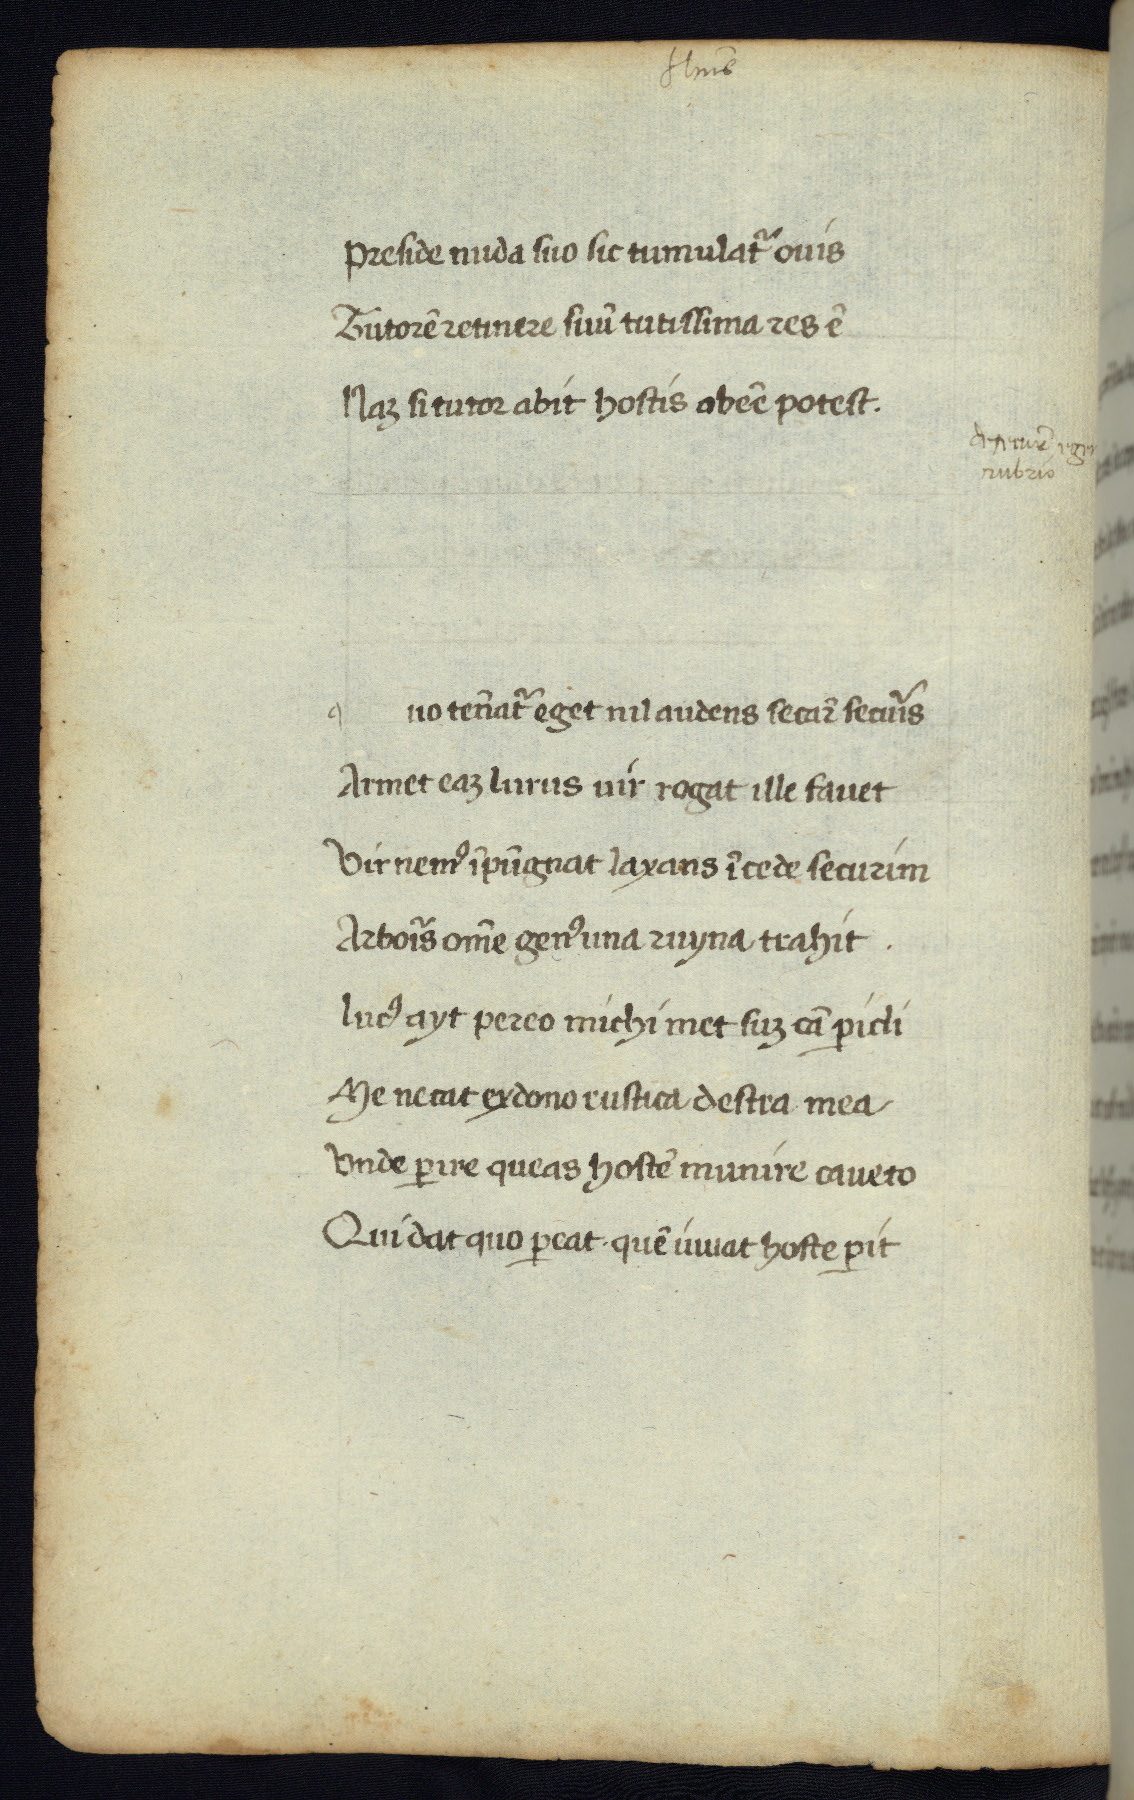 Preside nuda suo sic tumulat᷑ ouis
Tutorē retinere suū tutissima res ē
Naꝫ si tutor abit hostis abeē potest.
rubrio
q uo teriat᷑ eget nil audens secar̄ secur̄s
Armet eaꝫ lurus uir rogat ille fauet
Vir nemꝰ īpūgnat laxans ī cede securim
Arbor̄s om̄e genꝰ una ruyna trahit .
lucꝰ ayt pereo michi met suꝫ cā ꝑicli
Me necat ex dono rustica destra mea
Vnde ꝑire queas hostē munire caueto
Qui dat quo ꝑeat quē iuuat hoste ꝑit